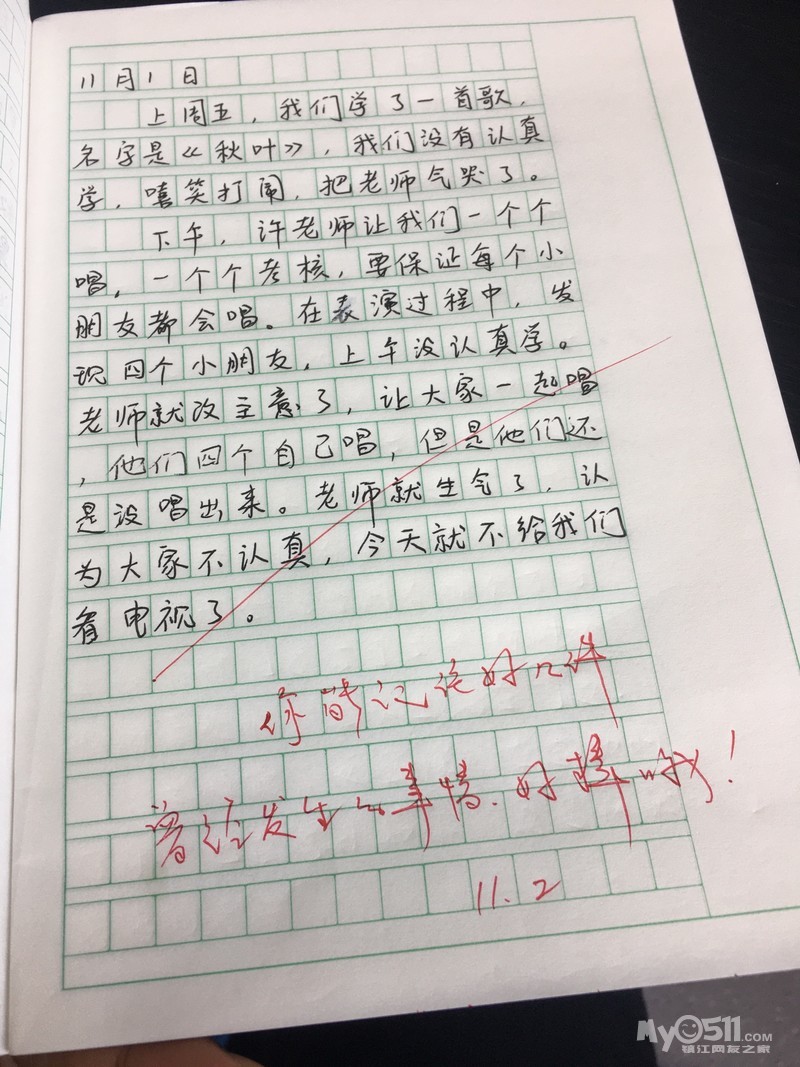 11月1日
上周五，我们学了一首歌，
名字是《秋叶》，我们没有认真
学，嘻笑打闹，把老师气哭了。
下午，许老师让我们一个个
唱，一个个考核，要保证每个小
朋友都会唱。在表演过程中，发
现四个小朋友，上午没认真学。
老师就改主意了，让大家一起唱
，他们四个自己唱，但是他们还
是没唱出来。老师就生气了，认
为大家不认真，今天就不给我们
看电视了。
你能记住好几件
曾经发生的事情，好棒哦！
11.2
MyO511.COM
镇江网友之家